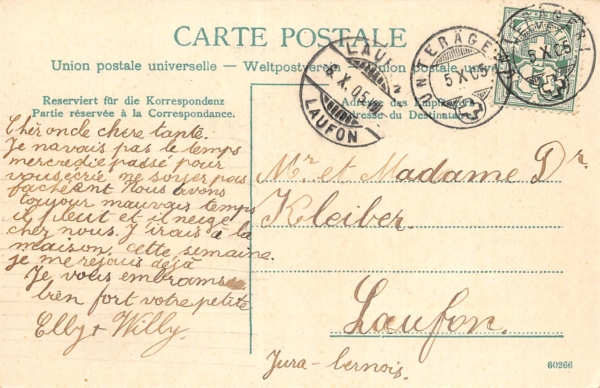 CARTE POSTALE
Union postale universelle — Weltpostverein — Union postale
Reserviert für die Korrespondenz
Partie réservée à la Correspondance.
Adresse des Empfängers
Adresse du Destinataire
LAUFON
6.X.05
LAUFON
UNTERÄGERI
5.X.05
UNTERÄGERI
5.X.05
HELVETIA
Chèr oncle chere tante.
Je navais pas le temps
mercredi passé pour
vous ecrié ne soyer pas
fachéent nous avons
toujour mauvais temps
il pleut et il neige
chez nous. J'irais à la
maison cette semaine.
je me rejouis déjà
Je vous embrams
bien fort votre petite
Elly + Willy.
Mr. et Madame Dr.
Kleiber.
Laufon.
Jura-bernois.
60266